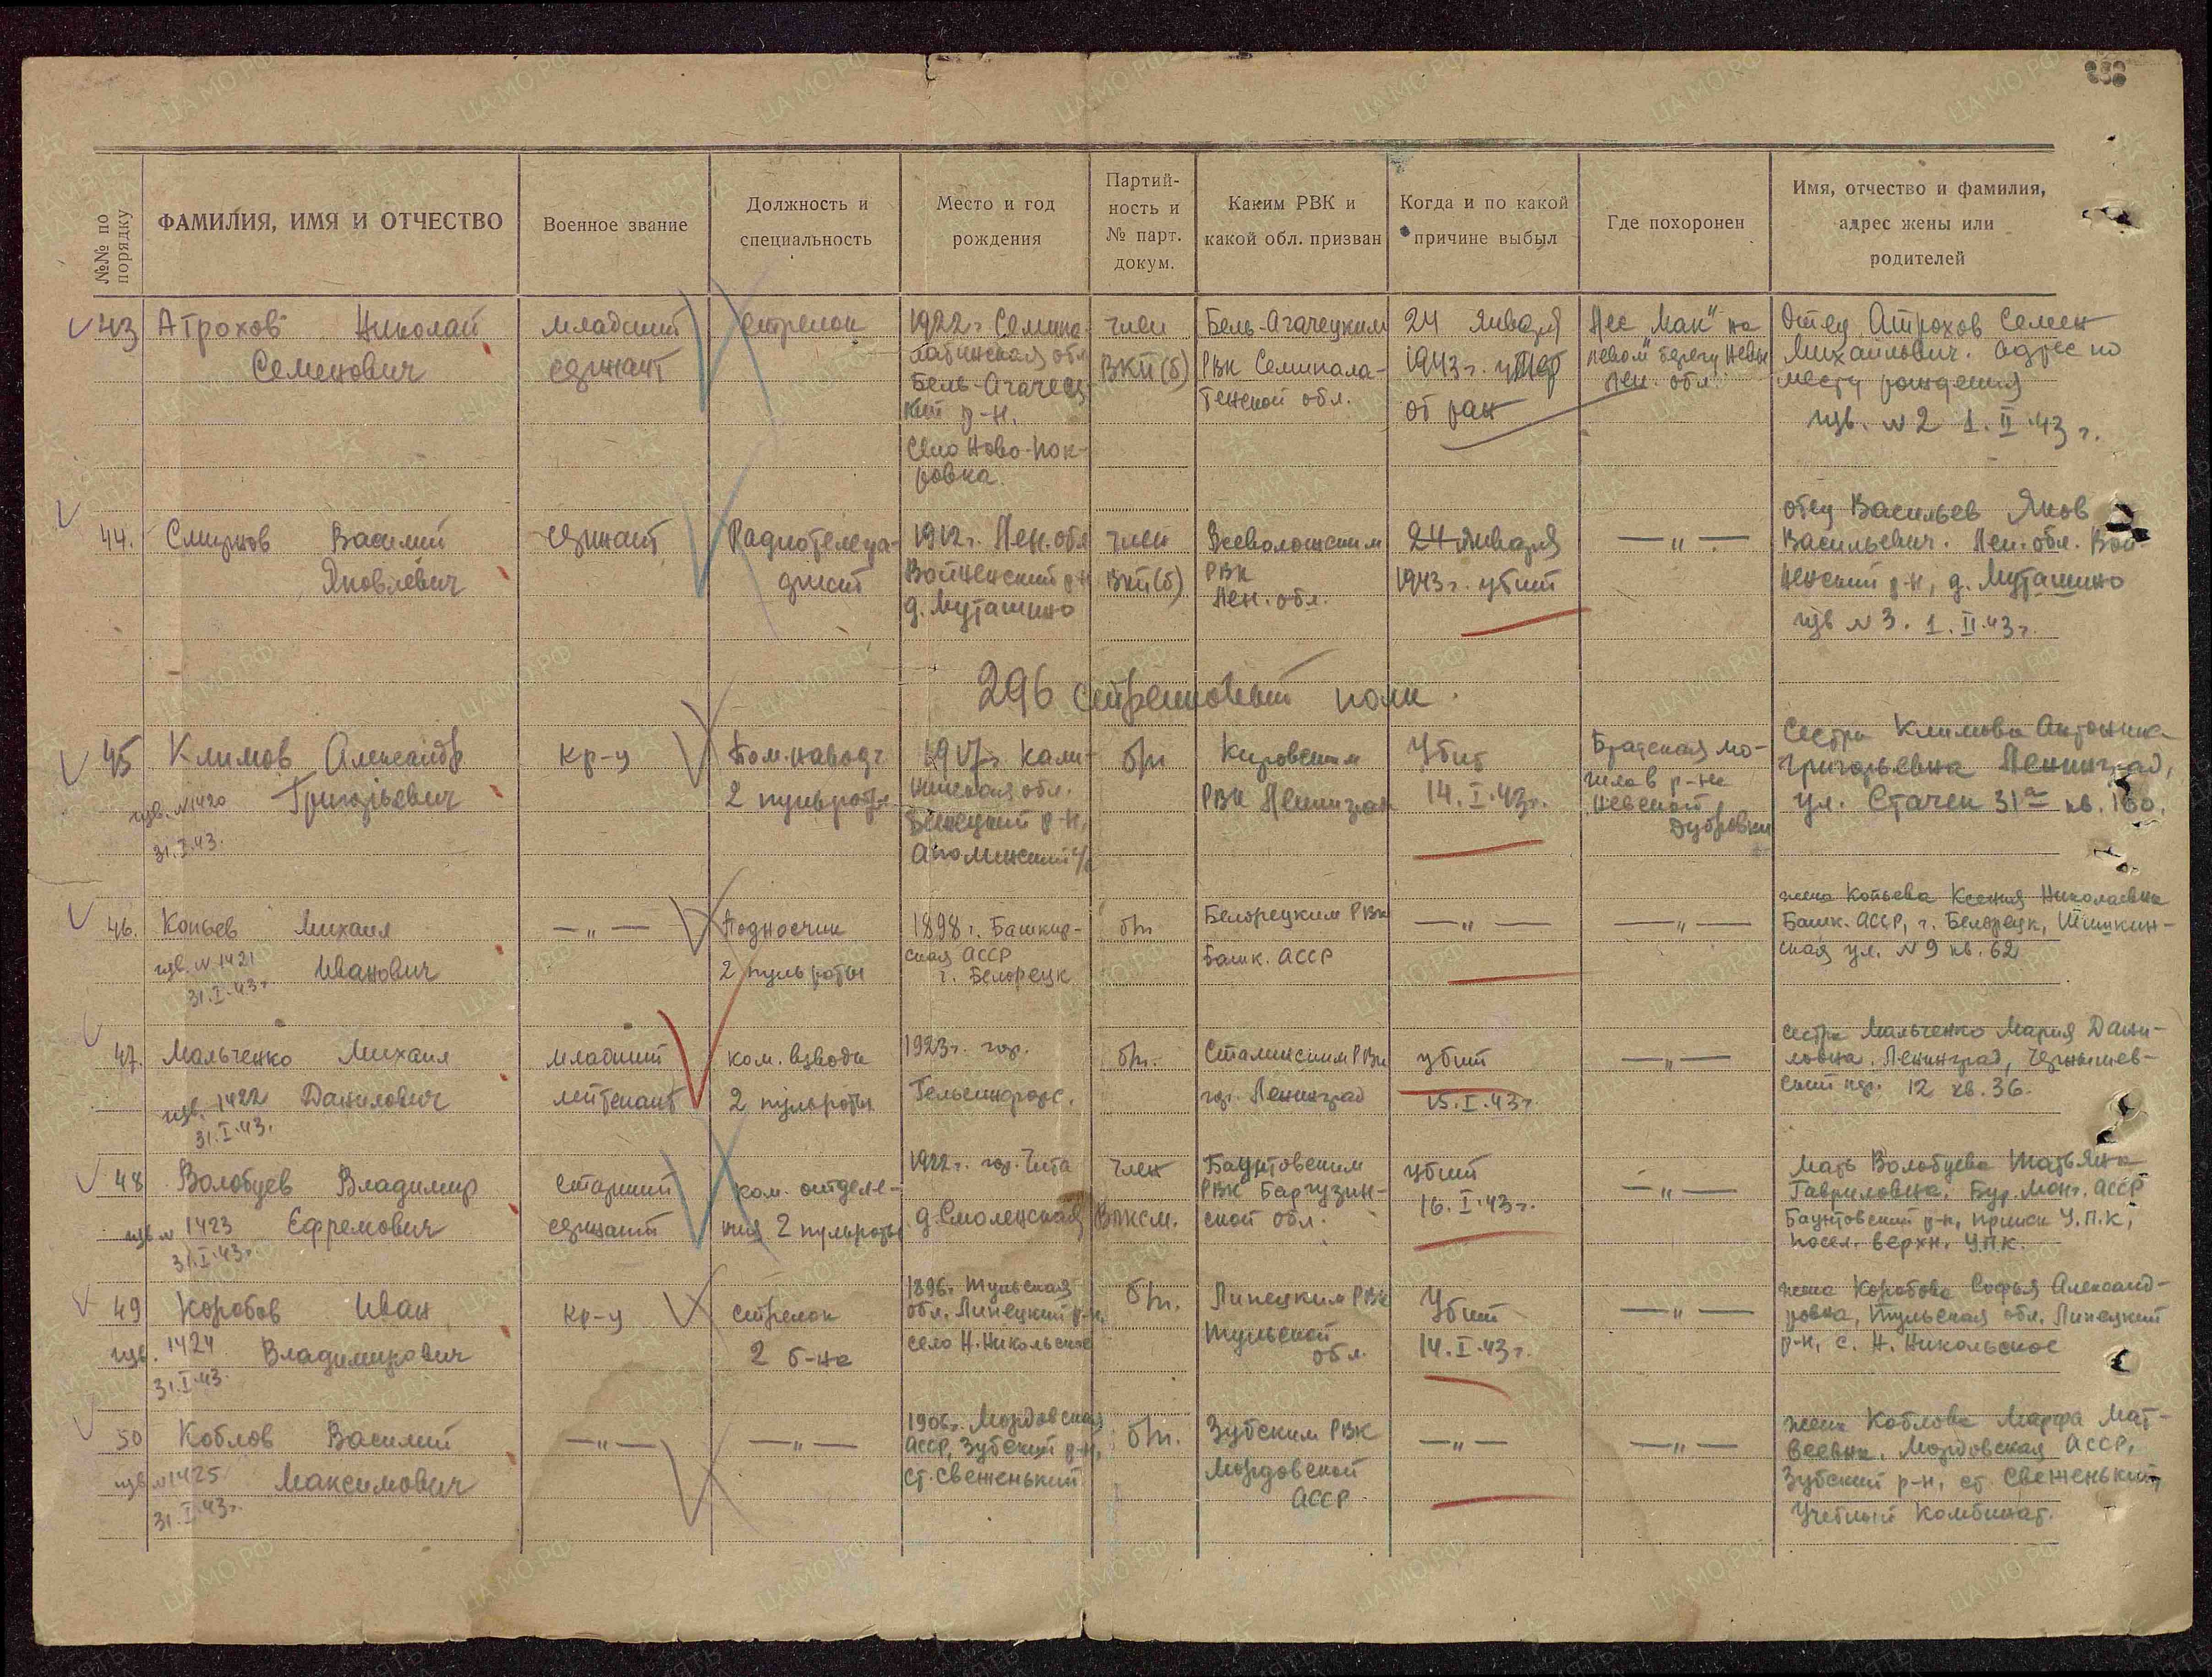 №№ по порядку
ФАМИЛИЯ, ИМЯ И ОТЧЕСТВО
Военное звание
Должность и
специальность
Место и год
рождения
Партий-
ность и
№ парт.
докум.
Каким РВК и
какой обл. призван
Когда и по какой
причине выбыл
Где похоронен
Имя, отчество и фамилия,
адрес жены или
родителей
43
Атрохов Николай
Семенович
младший
сержант
стрелок
1922 г. Семипа-
латинская обл.
Бель-Агачес
кий р-н.
Село Ново-Пок-
ровка.
член
ВКП(б)
Бель-Агачецким
РВК Семипала-
тенской обл.
24 января
1943 г. умер
от ран
Лес "Мак" на
левом берегу Невы
Лен. обл.
Отец Атрохов Семен
Михайлович. Адрес по
месту рождения
изв. №2 1.II.43 г.
44.
Смирнов Василий
Яковлевич
сержант
Радиотелегра-
фист
1912 г. Лен. обл
Войненский р-н
д. Муташино
член
ВКП(б)
Всеволожским
РВК
Лен. обл.
24 января
1943 г. убит
—"—
отец Васильев Яков
Васильевич. Лен. обл. Вой-
ненский р-н, д. Муташино
изв №3. 1.II.43 г.
296 стрелковый полк.
45
Климов Александр
Григорьевич
изв. №1420
31.I.43.
кр-ц
Пом. наводч
2 пульроты
1917 г. Кали-
нинская обл.
р-н,
б/п
Кировским
РВК Ленинград
Убит
14.I.43 г.
Братская мо-
гила в р-не
Невской
Дубровки
Сестра Климова Антонина
Григорьевна Ленинград,
ул. Стачек 31а кв. 160.
46.
Копьев Михаил
Иванович
изв. №1421
31.I.43 г.
—"—
Подносчик
2 пульроты
1898 г. Башкир-
ская АССР
г. Белорецк
б/п
Белорецким РВК
Башк. АССР
—"—
—"—
жена Копьева Ксения Николаевна
Башк. АССР, г. Белорецк, Пушкин-
ская ул. №9 кв. 62
47.
Мальченко Михаил
Данилович
изв. 1422
31.I.43.
младший
лейтенант
ком. взвода
2 пульроты
1923 г. гор.
Гельсингфорс.
б/п.
Сталинским РВК
гор. Ленинград
убит
15.I.43 г.
—"—
сестра Мальченко Мария Дани-
ловна. Ленинград, Чернышев-
ский пер. 12 кв. 36.
48
Волобуев Владимир
Ефремович
изв № 1423
31.I.43 г.
старший
сержант
ком. отделе-
ния 2 пульроты
1922 г. гор. Чита
д. Смоленская
член
ВЛКСМ.
Баунтовским
РВК Баргузин-
ской обл.
убит
16.I.43 г.
—"—
Мать Волобуева Татьяна
Гавриловна. Бур. Монг. АССР
Баунтовский р-н, прииск У.П.К,
посел. верхн. У.П.К.
49
Коробов Иван
Владимирович
изв. 1424
31.I.43.
кр-ц
стрелок
2 б-на
1896 г. Тульская
обл. Липецкий р-н,
село Н. Никольское
б/п.
Липецким РВК
Тульской
обл.
Убит
14.I.43 г.
—"—
жена Коробова Софья Александ-
ровна, Тульская обл. Липецкий
р-н, с. Н. Никольское
50
Коблов Василий
Максимович
изв №1425
31.I.43 г.
—"—
—"—
1906 г. Мордовская
АССР, Зубский р-н,
ст. Свеженький
б/п.
Зубским РВК
Мордовской
АССР
—"—
—"—
жена Коблова Марфа Мат-
веевна. Мордовская АССР,
Зубский р-н, ст. Свеженький,
Учебный Комбинат.